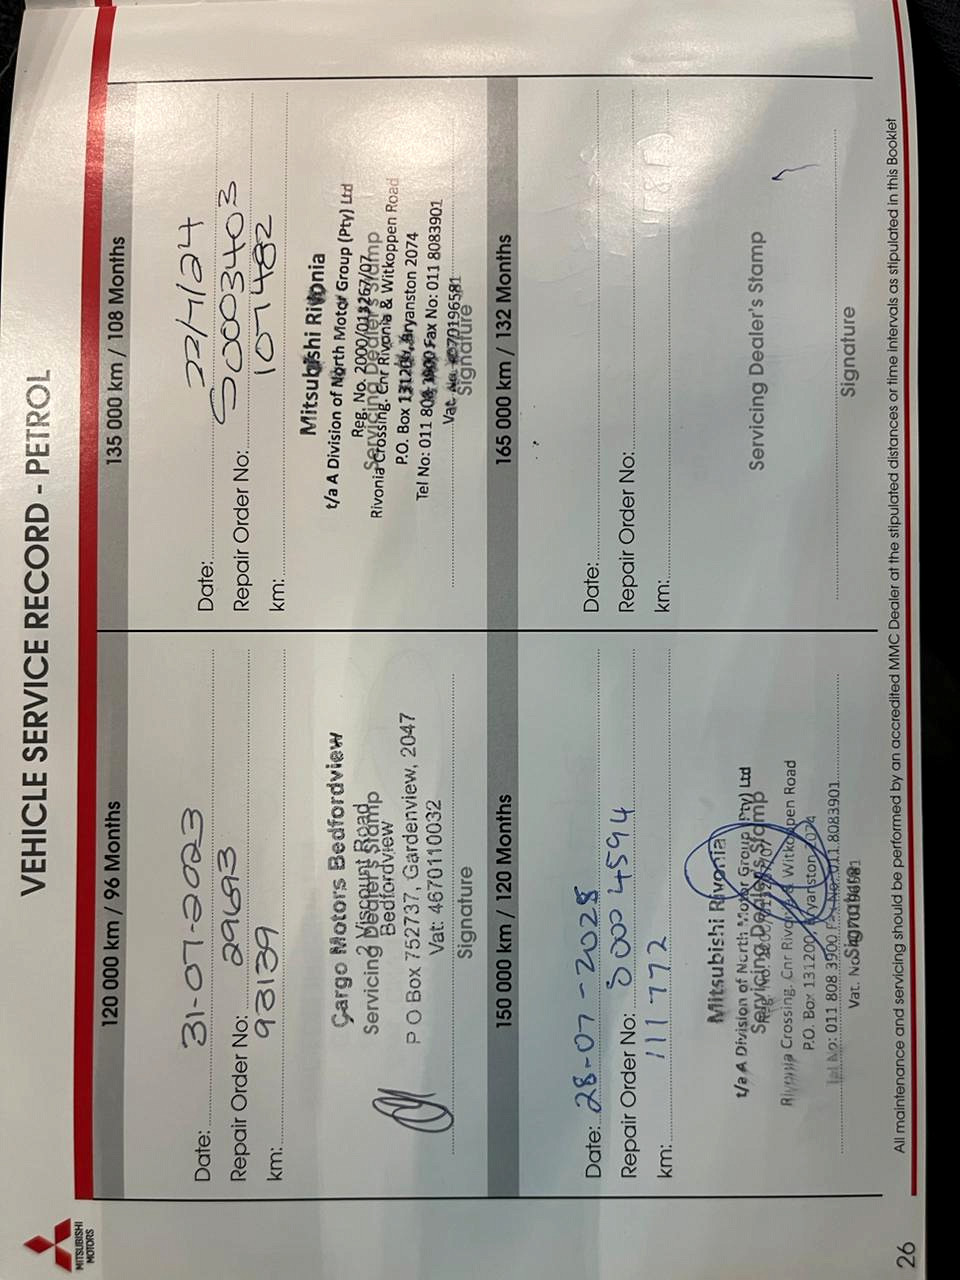 MITSUBISHI
MOTORS
VEHICLE SERVICE RECORD - PETROL
120 000 km / 96 Months
Date: 31-07-2023
Repair Order No: 29693
km: 93139
Cargo Motors Bedfordview
2 Viscount Road
Servicing Dealer's Stamp
Bedfordview
P O Box 752737, Gardenview, 2047
Vat: 4670110032
Signature
135 000 km / 108 Months
Date: 22/7/24
Repair Order No: S0003403
km: 107482
Mitsubishi Rivonia
t/a A Division of North Motor Group (Pty) Ltd
Reg. No. 2000/013267/07
Servicing Dealer's Stamp
Rivonia Crossing. Cnr Rivonia & Witkoppen Road
P.O. Box 131200, Bryanston 2074
Tel No: 011 808 3900 Fax No: 011 8083901
Vat. No. 4070196581
Signature
150 000 km / 120 Months
Date: 28-07-2025
Repair Order No: S000 4594
km: 111 772
Mitsubishi Rivonia
t/a A Division of North Motor Group (Pty) Ltd
Servicing Dealer's Stamp
Rivonia Crossing. Cnr Rivonia & Witkoppen Road
P.O. Box 131200, Bryanston 2074
Tel No: 011 808 3900 Fax No: 011 8083901
Vat. No. 4070196581
Signature
165 000 km / 132 Months
Date:
Repair Order No:
km:
Servicing Dealer's Stamp
Signature
26
All maintenance and servicing should be performed by an accredited MMC Dealer at the stipulated distances or time intervals as stipulated in this Booklet